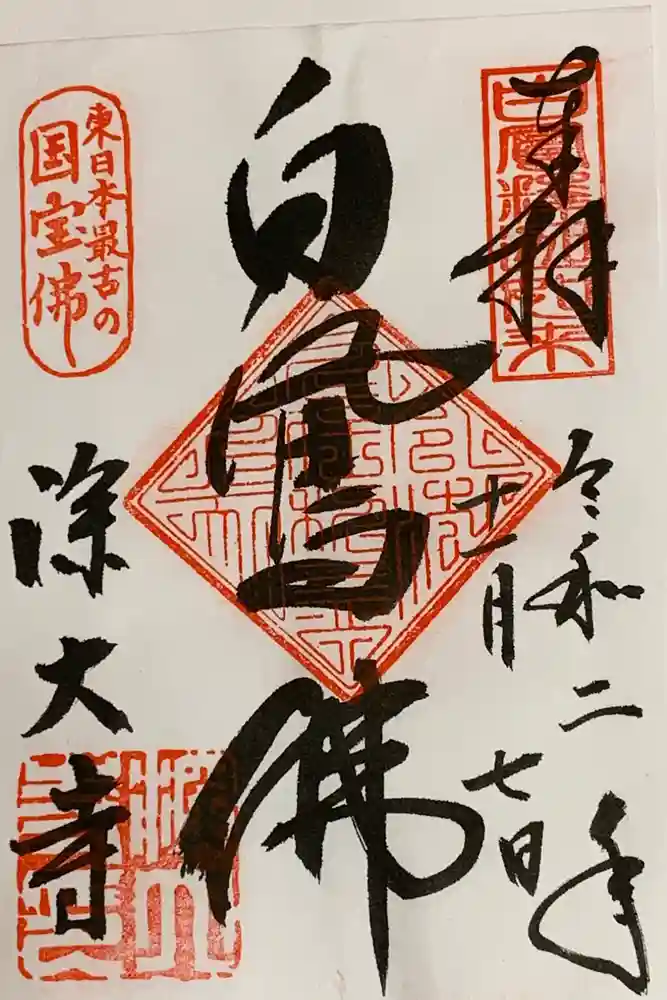 奉拝
令和二年
十一月七日
白鳳佛
東日本最古の
国宝佛
深大寺